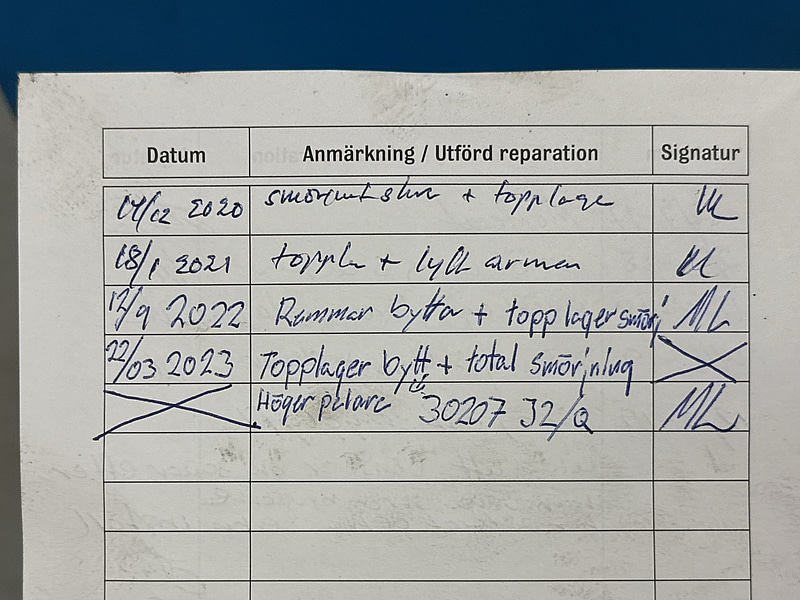 Datum Anmärkning / Utförd reparation Signatur
17/12 2020 + topplage
18/1 2021 + lyft armen
12/9 2022 Rammar bytta + topplager smörj ML
22/03 2023 Topplager bytt + total smörjning
Höger pelare 30207 J2/Q ML